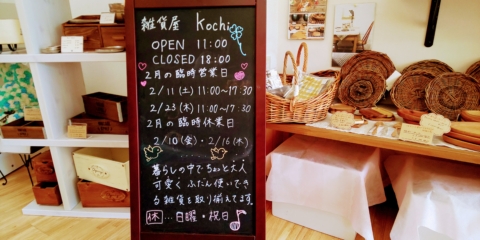 雑貨屋 kochi
OPEN 11:00
CLOSED 18:00
2月の臨時営業日
2/11(土) 11:00〜17:30
2/23(木) 11:00〜17:30
2月の臨時休業日
2/10(金)・2/16(木)
暮らしの中でちょっと大人
可愛く ふだん使いでき
る雑貨を取り揃えてます。
休…日曜・祝日